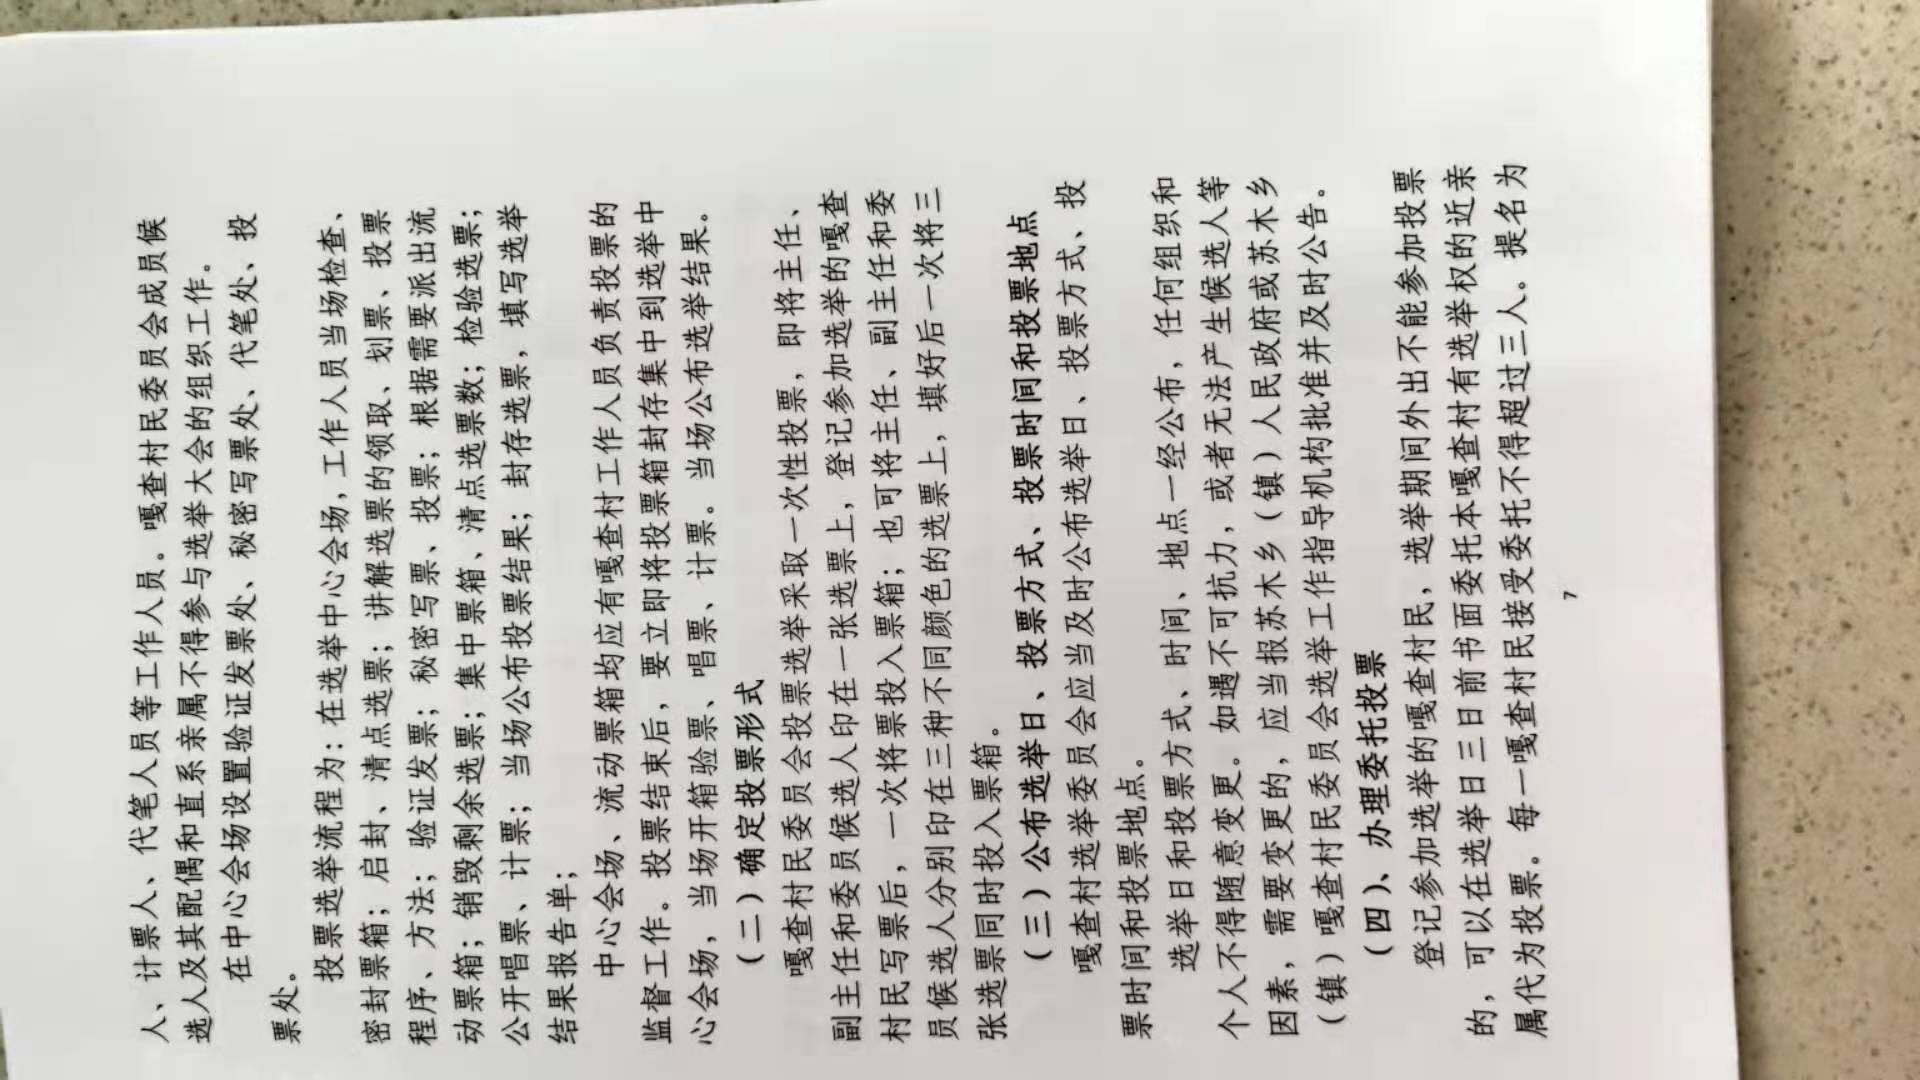 人、计票人、代笔人员等工作人员。嘎查村民委员会成员候
选人及其配偶和直系亲属不得参与选举大会的组织工作。
在中心会场设置验证发票处、秘密写票处、代笔处、投
票处。
投票选举流程为：在选举中心会场，工作人员当场检查、
密封票箱；启封、清点选票；讲解选票的领取、划票、投票
程序、方法；验证发票；秘密写票、投票；根据需要派出流
动票箱；销毁剩余选票；集中票箱、清点选票数；检验选票；
公开唱票、计票；当场公布投票结果；封存选票，填写选举
结果报告单；
中心会场、流动票箱均应有嘎查村工作人员负责投票的
监督工作。投票结束后，要立即将投票箱封存集中到选举中
心会场，当场开箱验票、唱票、计票。当场公布选举结果。
（二）确定投票形式
嘎查村民委员会投票选举采取一次性投票，即将主任、
副主任和委员候选人印在一张选票上，登记参加选举的嘎查
村民写票后，一次将票投入票箱；也可将主任、副主任和委
员候选人分别印在三种不同颜色的选票上，填好后一次将三
张选票同时投入票箱。
（三）公布选举日、投票方式、投票时间和投票地点
嘎查村选举委员会应当及时公布选举日、投票方式、投
票时间和投票地点。
选举日和投票方式、时间、地点一经公布，任何组织和
个人不得随意变更。如遇不可抗力，或者无法产生候选人等
因素，需要变更的，应当报苏木乡（镇）人民政府或苏木乡
（镇）嘎查村民委员会选举工作指导机构批准并及时公告。
（四）、办理委托投票
登记参加选举的嘎查村民，选举期间外出不能参加投票
的，可以在选举日三日前书面委托本嘎查村有选举权的近亲
属代为投票。每一嘎查村民接受委托不得超过三人。提名为
7